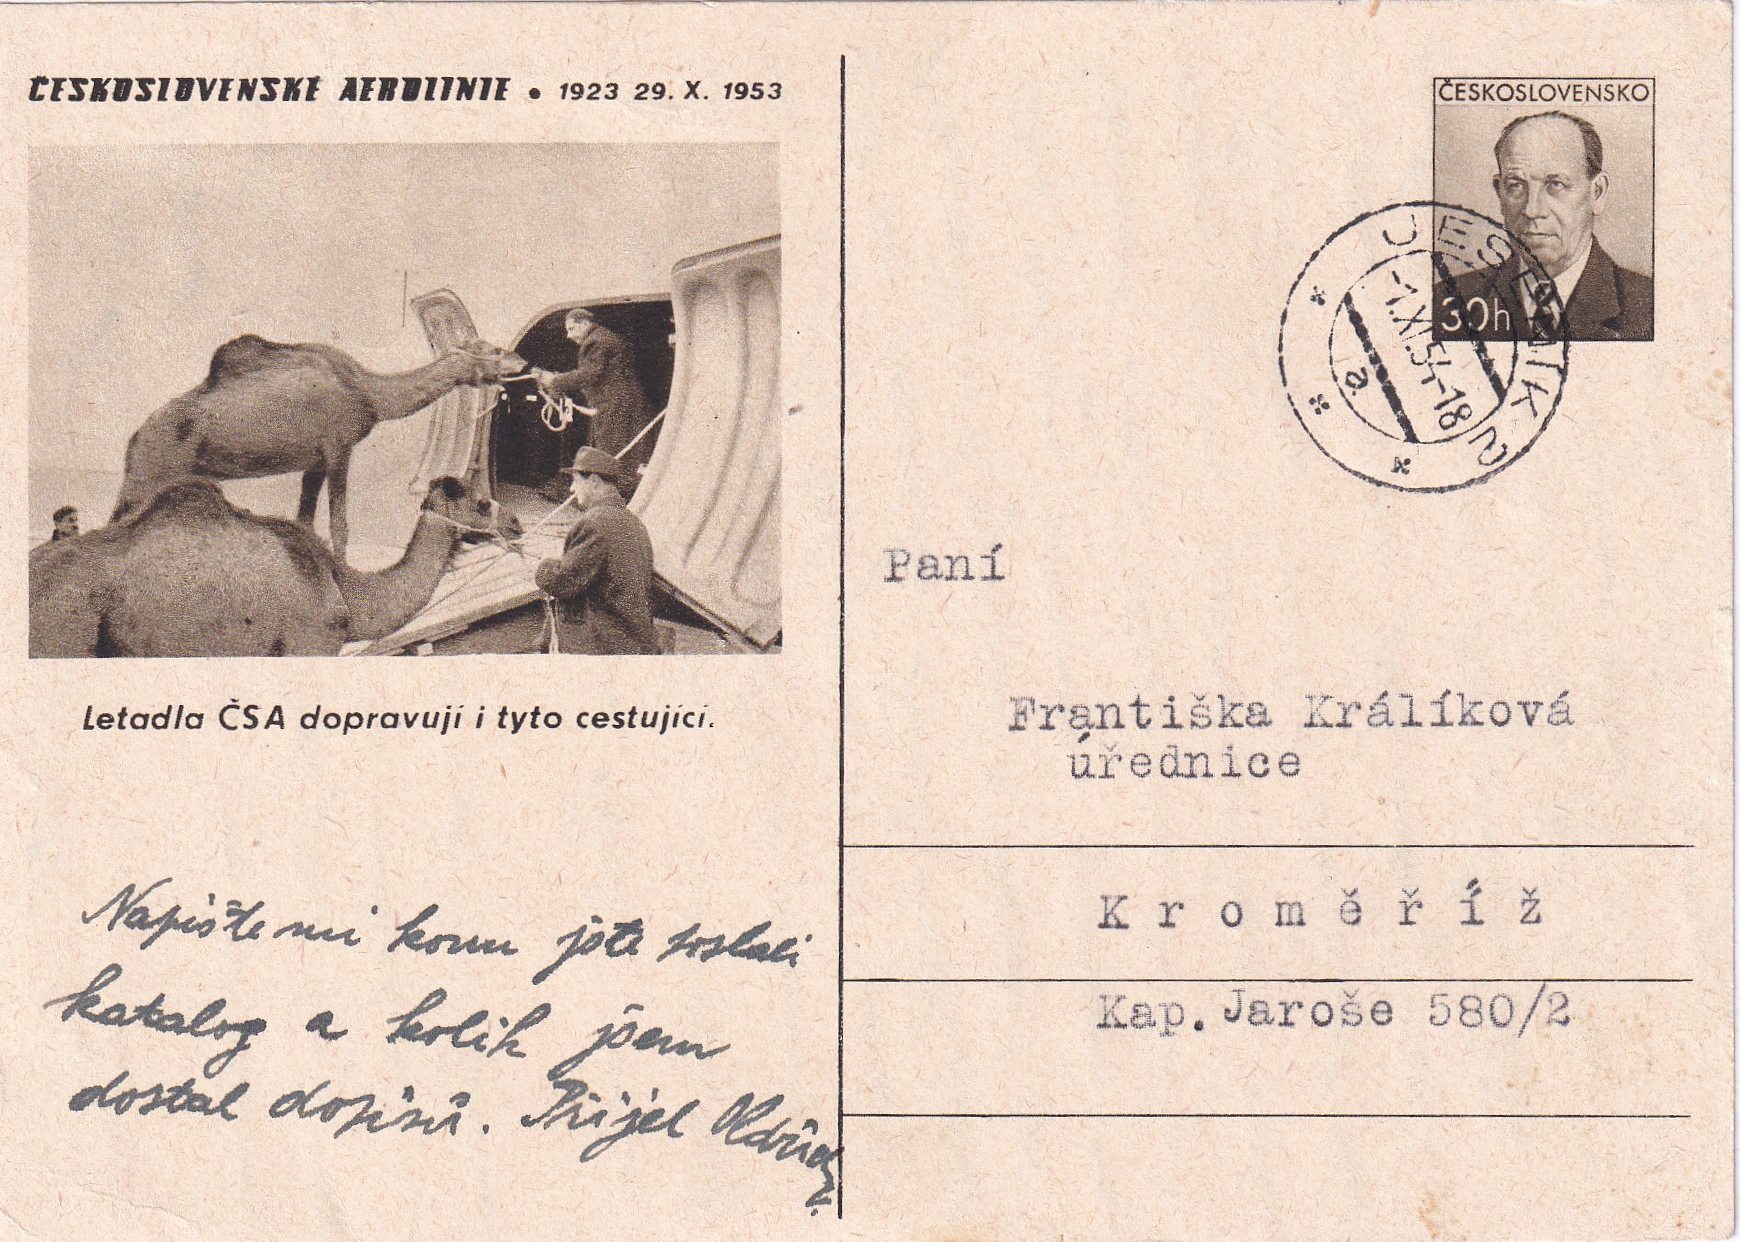 ČESKOSLOVENSKÉ AEROLINIE • 1923 29. X. 1953
Letadla ČSA dopravují i tyto cestující.
Napište mi komu jste poslali
katalog a kolik jsem
dostal dopisů. Přijel Oldřich?
ČESKOSLOVENSKO
30h
JESENÍK 2
-1.XI.54-18
a
Paní
Františka Králíková
úřednice
Kroměříž
Kap. Jaroše 580/2